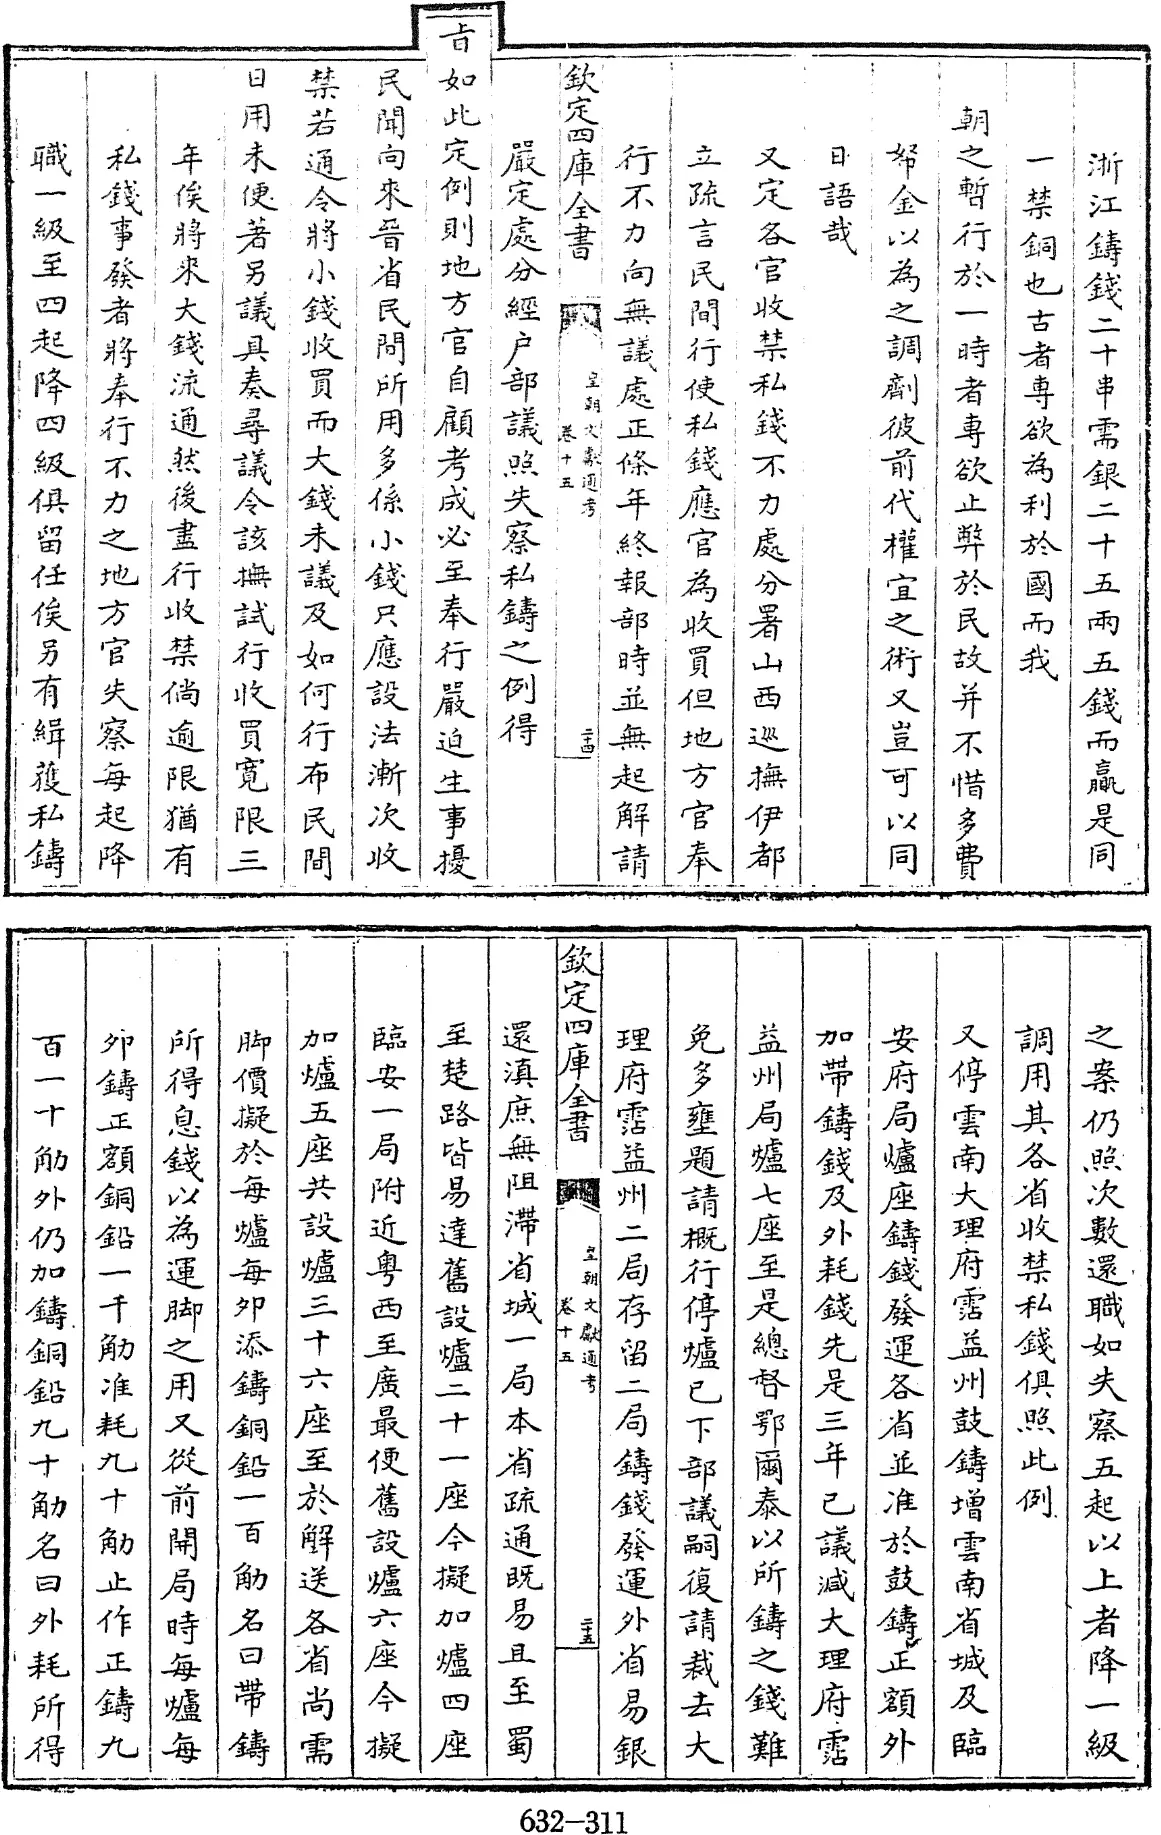 浙江鑄錢二十串需銀二十五兩五錢而贏是同
一禁銅也古者専欲為利於國而我
朝之暫行於一時者専欲止弊於民故并不惜多費
帑金以為之調劑彼前代權宜之術又豈可以同
日語哉
又定各官收禁私錢不力處分署山西廵撫伊都
立疏言民間行使私錢應官為收買但地方官奉
行不力向無議處正條年終報部時並無起解請
欽定四庫全書
皇朝文獻通考
卷十五
二十四
嚴定處分經户部議照失察私鑄之例得
㫖如此定例則地方官自顧考成必至奉行嚴迫生事擾
民聞向來晉省民間所用多係小錢只應設法漸次收
禁若通令將小錢收買而大錢未議及如何行布民間
日用未便著另議具奏尋議令該撫試行收買寛限三
年俟將來大錢流通然後盡行收禁倘逾限猶有
私錢事發者將奉行不力之地方官失察每起降
職一級至四起降四級俱留任俟另有緝獲私鑄
之案仍照次數還職如失察五起以上者降一級
調用其各省收禁私錢俱照此例
又停雲南大理府霑益州鼓鑄增雲南省城及臨
安府局爐座鑄錢發運各省並准於鼓鑄正額外
加帶鑄錢及外耗錢先是三年已議減大理府霑
益州局爐七座至是總督鄂爾泰以所鑄之錢難
免多壅題請概行停爐已下部議嗣復請裁去大
理府霑益州二局存留二局鑄錢發運外省易銀
欽定四庫全書
皇朝文獻通考
卷十五
二十五
還滇庶無阻滯省城一局本省疏通既易且至蜀
至楚路皆易達舊設爐二十一座今擬加爐四座
臨安一局附近粤西至廣最便舊設爐六座今擬
加爐五座共設爐三十六座至於解送各省尚需
脚價擬於每爐每夘添鑄銅鉛一百觔名曰帶鑄
所得息錢以為運脚之用又從前開局時每爐每
夘鑄正額銅鉛一千觔准耗九十觔止作正鑄九
百一十觔外仍加鑄銅鉛九十觔名曰外耗所得
632-311